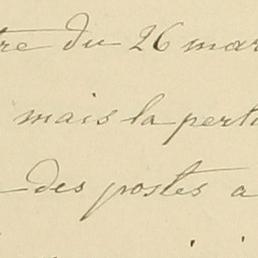 tre du 26 mar
mais la pert
des postes a